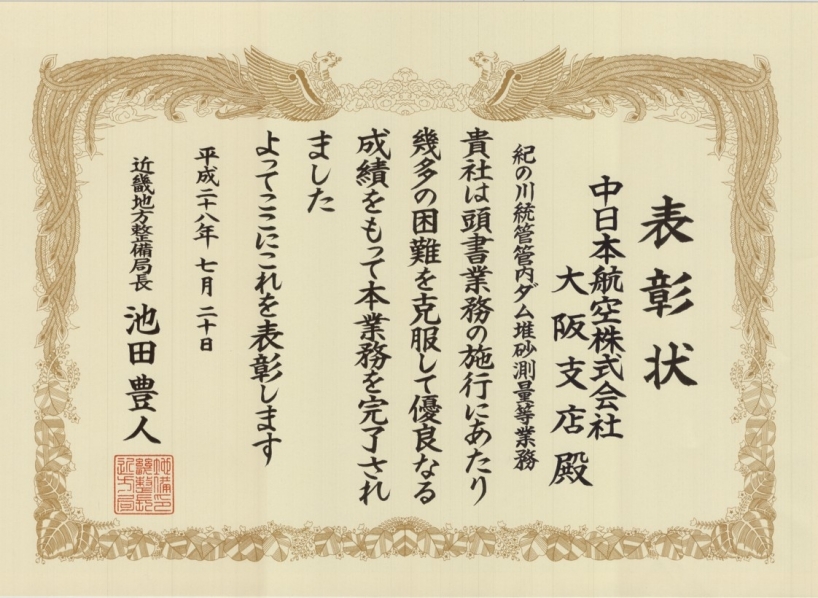 表彰状
中日本航空株式会社
大阪支店殿
紀の川統管管内ダム堆砂測量等業務
貴社は頭書業務の施行にあたり
幾多の困難を克服して優良なる
成績をもって本業務を完了され
ました
よってここにこれを表彰します
平成二十八年七月二十日
近畿地方整備局長 池田豊人